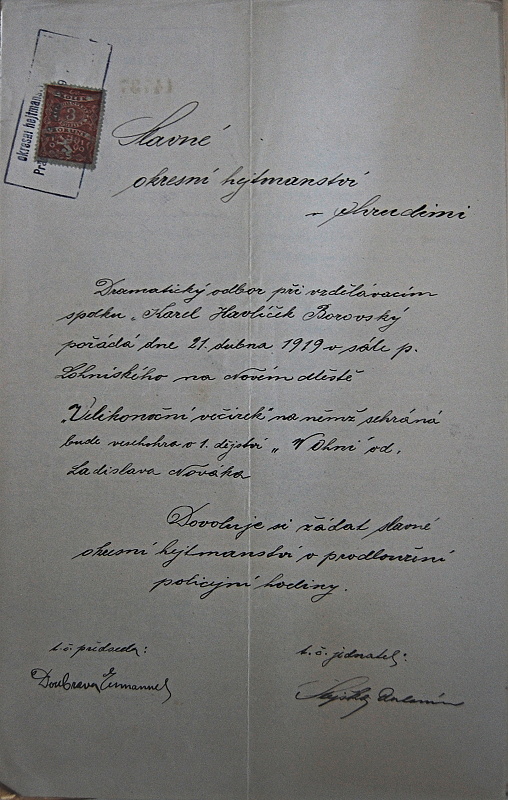 okresní hejtman
Slavné
okresní hejtmanství
v Chrudimi
Dramatický odbor při vzdělávacím
spolku „Karel Havlíček Borovský
pořádá dne 21. dubna 1919 v sále p.
Lohniského na Novém Městě
„Velikonoční večírek" na němž sehrána
bude veselohra o 1. dějství „V Ohni" od.
Ladislava Nováka
Dovoluje si žádat slavné
okresní hejtmanství o prodloužení
policejní hodiny.
t.č. předseda:
t.č. jednatel:
Doubrava Emanuel